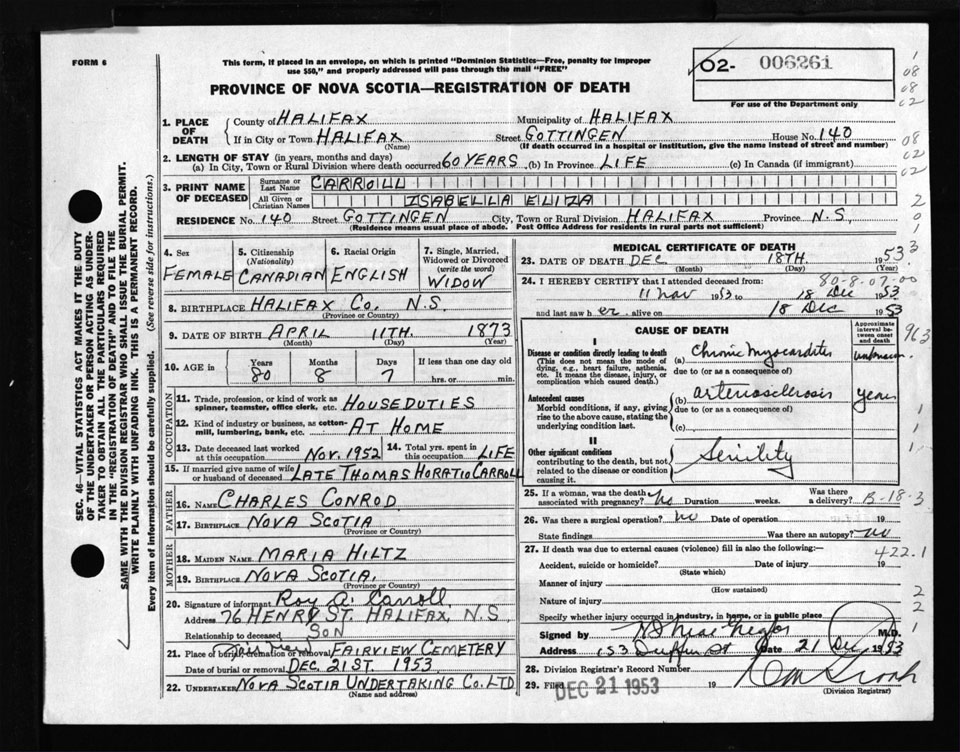 FORM 6
This form, if placed in an envelope, on which is printed "Dominion Statistics—Free, penalty for improper
use $50," and properly addressed will pass through the mail "FREE"
02- 006261
PROVINCE OF NOVA SCOTIA—REGISTRATION OF DEATH
For use of the Department only
1. PLACE OF DEATH
County of HALIFAX Municipality of HALIFAX
If in City or Town HALIFAX Street GOTTINGEN House No. 140
(Name) (If death occurred in a hospital or institution, give the name instead of street and number)
2. LENGTH OF STAY (in years, months and days)
(a) In City, Town or Rural Division where death occurred 60 YEARS (b) In Province LIFE (c) In Canada (if immigrant)
3. PRINT NAME OF DECEASED
Surname or Last Name CARROLL
All Given or Christian Names ISABELLA ELIZA
RESIDENCE No. 140 Street GOTTINGEN City, Town or Rural Division HALIFAX Province N.S.
(Residence means usual place of abode. Post Office Address for residents in rural parts not sufficient)
4. Sex
FEMALE
5. Citizenship
(Nationality)
CANADIAN
6. Racial Origin
ENGLISH
7. Single, Married,
Widowed or Divorced
(write the word)
WIDOW
8. BIRTHPLACE HALIFAX CO. N.S.
(Province or Country)
9. DATE OF BIRTH APRIL 11TH. 1873
(Month) (Day) (Year)
10. AGE in Years Months Days If less than one day old
80 8 7 hrs. or min.
OCCUPATION
11. Trade, profession, or kind of work as
spinner, teamster, office clerk, etc. HOUSE DUTIES
12. Kind of industry or business, as cotton-
mill, lumbering, bank, etc. AT HOME
13. Date deceased last worked
at this occupation NOV. 1952
14. Total yrs. spent in
this occupation LIFE
15. If married give name of wife
or husband of deceased LATE THOMAS HORATIO CARROLL
FATHER
16. NAME CHARLES CONROD
17. BIRTHPLACE NOVA SCOTIA
(Province or Country)
MOTHER
18. MAIDEN NAME MARIA HILTZ
19. BIRTHPLACE NOVA SCOTIA.
(Province or Country)
20. Signature of informant Roy A. Carroll
Address 76 HENRY ST. HALIFAX, N.S.
Relationship to deceased SON
21. Place of burial, cremation or removal FAIRVIEW CEMETERY
Date of burial or removal DEC. 21ST. 1953
22. UNDERTAKER NOVA SCOTIA UNDERTAKING CO. LTD
(Name and address)
MEDICAL CERTIFICATE OF DEATH
23. DATE OF DEATH DEC 18TH. 1953
(Month) (Day) (Year)
80-8-07-00
24. I HEREBY CERTIFY that I attended deceased from:
11 Nov 1953 to 18 Dec 1953
and last saw her alive on 18 Dec 1953
CAUSE OF DEATH
Approximate
interval be-
tween onset
and death
I
Disease or condition directly leading to death
(This does not mean the mode of
dying, e.g., heart failure, asthenia,
etc. It means the disease, injury, or
complication which caused death.)
(a) Chronic myocarditis unknown
due to (or as a consequence of)
Antecedent causes
Morbid conditions, if any, giving
rise to the above cause, stating the
underlying condition last.
(b) arteriosclerosis years
due to (or as a consequence of)
(c)
II
Other significant conditions
contributing to the death, but not
related to the disease or condition
causing it.
Senility
25. If a woman, was the death
associated with pregnancy? no Duration weeks. Was there
a delivery?
B-18-3
26. Was there a surgical operation? no Date of operation 19
State findings Was there an autopsy? no
27. If death was due to external causes (violence) fill in also the following:—
422.1
Accident, suicide or homicide? Date of injury 19
(State which)
Manner of injury
(How sustained)
Nature of injury
Specify whether injury occurred in industry, in home, or in public place
Signed by M.D.
Address 153 St Date 21 Dec 1953
28. Division Registrar's Record Number
29. Filed DEC 21 1953 19
(Division Registrar)
SEC. 46—VITAL STATISTICS ACT MAKES IT THE DUTY
OF THE UNDERTAKER OR PERSON ACTING AS UNDER-
TAKER TO OBTAIN ALL THE PARTICULARS REQUIRED
IN THE "REGISTRATION OF DEATH" AND TO FILE THE
SAME WITH THE DIVISION REGISTRAR WHO SHALL ISSUE THE BURIAL PERMIT.
WRITE PLAINLY WITH UNFADING INK. THIS IS A PERMANENT RECORD.
Every item of information should be carefully supplied. (See reverse side for instructions.)
1
08
08
02
08
02
02
2
0
1
3
963
1
1
1
2
2
1